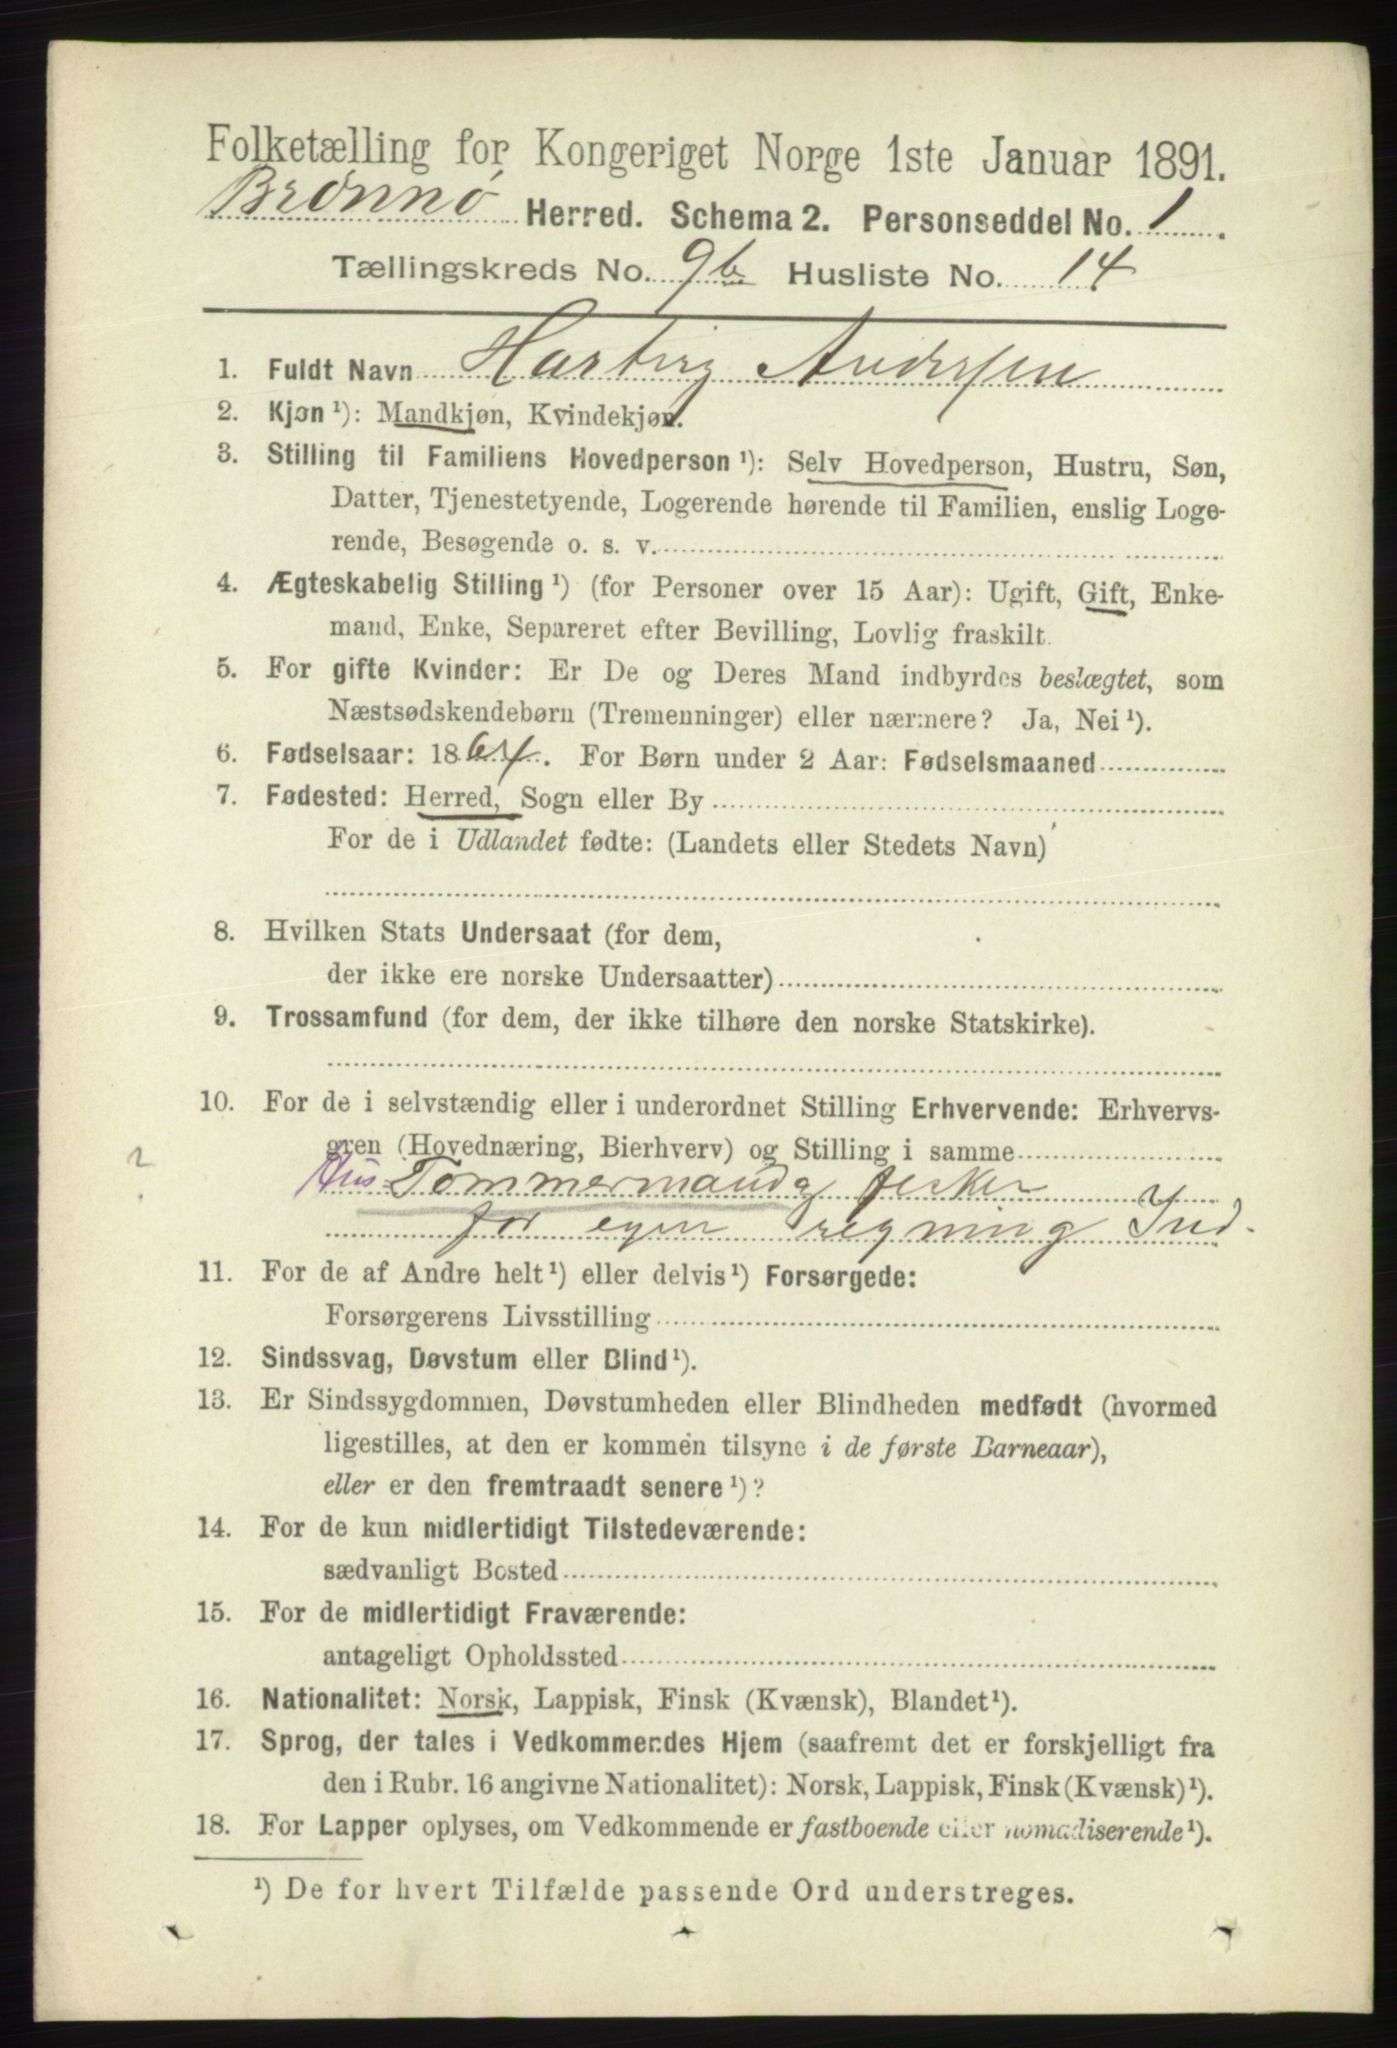 Folketælling for Kongeriget Norge 1ste Januar 1891.
Brønnø Herred. Schema 2. Personseddel No. 1
Tællingskreds No. 9b Husliste No. 14
1. Fuldt Navn Hartvig Andersen
2. Kjøn ¹): Mandkjøn, Kvindekjøn.
3. Stilling til Familiens Hovedperson ¹): Selv Hovedperson, Hustru, Søn,
Datter, Tjenestetyende, Logerende hørende til Familien, enslig Loge-
rende, Besøgende o. s. v.
4. Ægteskabelig Stilling ¹) (for Personer over 15 Aar): Ugift, Gift, Enke-
mand, Enke, Separeret efter Bevilling, Lovlig fraskilt.
5. For gifte Kvinder: Er De og Deres Mand indbyrdes beslægtet, som
Næstsødskendebørn (Tremenninger) eller nærmere? Ja, Nei ¹).
6. Fødselsaar: 1864. For Børn under 2 Aar: Fødselsmaaned
7. Fødested: Herred, Sogn eller By
For de i Udlandet fødte: (Landets eller Stedets Navn)
8. Hvilken Stats Undersaat (for dem,
der ikke ere norske Undersaatter)
9. Trossamfund (for dem, der ikke tilhøre den norske Statskirke).
10. For de i selvstændig eller i underordnet Stilling Erhvervende: Erhvervs-
gren (Hovednæring, Bierhverv) og Stilling i samme
2
Hus Tømmermand og fisker
for egen regning Ind.
11. For de af Andre helt ¹) eller delvis ¹) Forsørgede:
Forsørgerens Livsstilling
12. Sindssvag, Døvstum eller Blind ¹).
13. Er Sindssygdommen, Døvstumheden eller Blindheden medfødt (hvormed
ligestilles, at den er kommen tilsyne i de første Barneaar),
eller er den fremtraadt senere ¹)?
14. For de kun midlertidigt Tilstedeværende:
sædvanligt Bosted
15. For de midlertidigt Fraværende:
antageligt Opholdssted
16. Nationalitet: Norsk, Lappisk, Finsk (Kvænsk), Blandet ¹).
17. Sprog, der tales i Vedkommendes Hjem (saafremt det er forskjelligt fra
den i Rubr. 16 angivne Nationalitet): Norsk, Lappisk, Finsk (Kvænsk) ¹).
18. For Lapper oplyses, om Vedkommende er fastboende eller nomadiserende ¹).
¹) De for hvert Tilfælde passende Ord understreges.